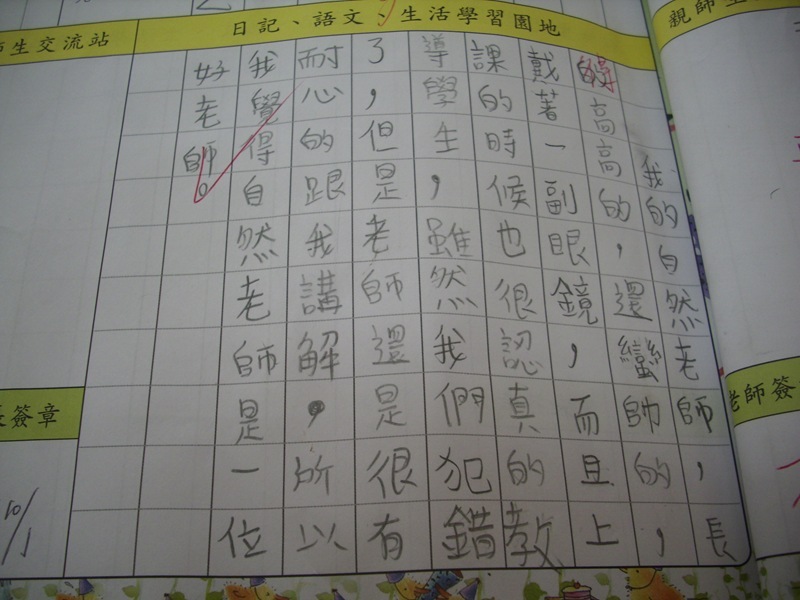 日記、語文、生活學習園地
我的自然老師，長
得高高的，還蠻帥的，
戴著一副眼鏡，而且上
課的時候也很認真的教
導學生，雖然我們犯錯
了，但是老師還是很有
耐心的跟我講解，所以
我覺得自然老師是一位
好老師。
生交流站
簽章
10/1
親師生
老師簽